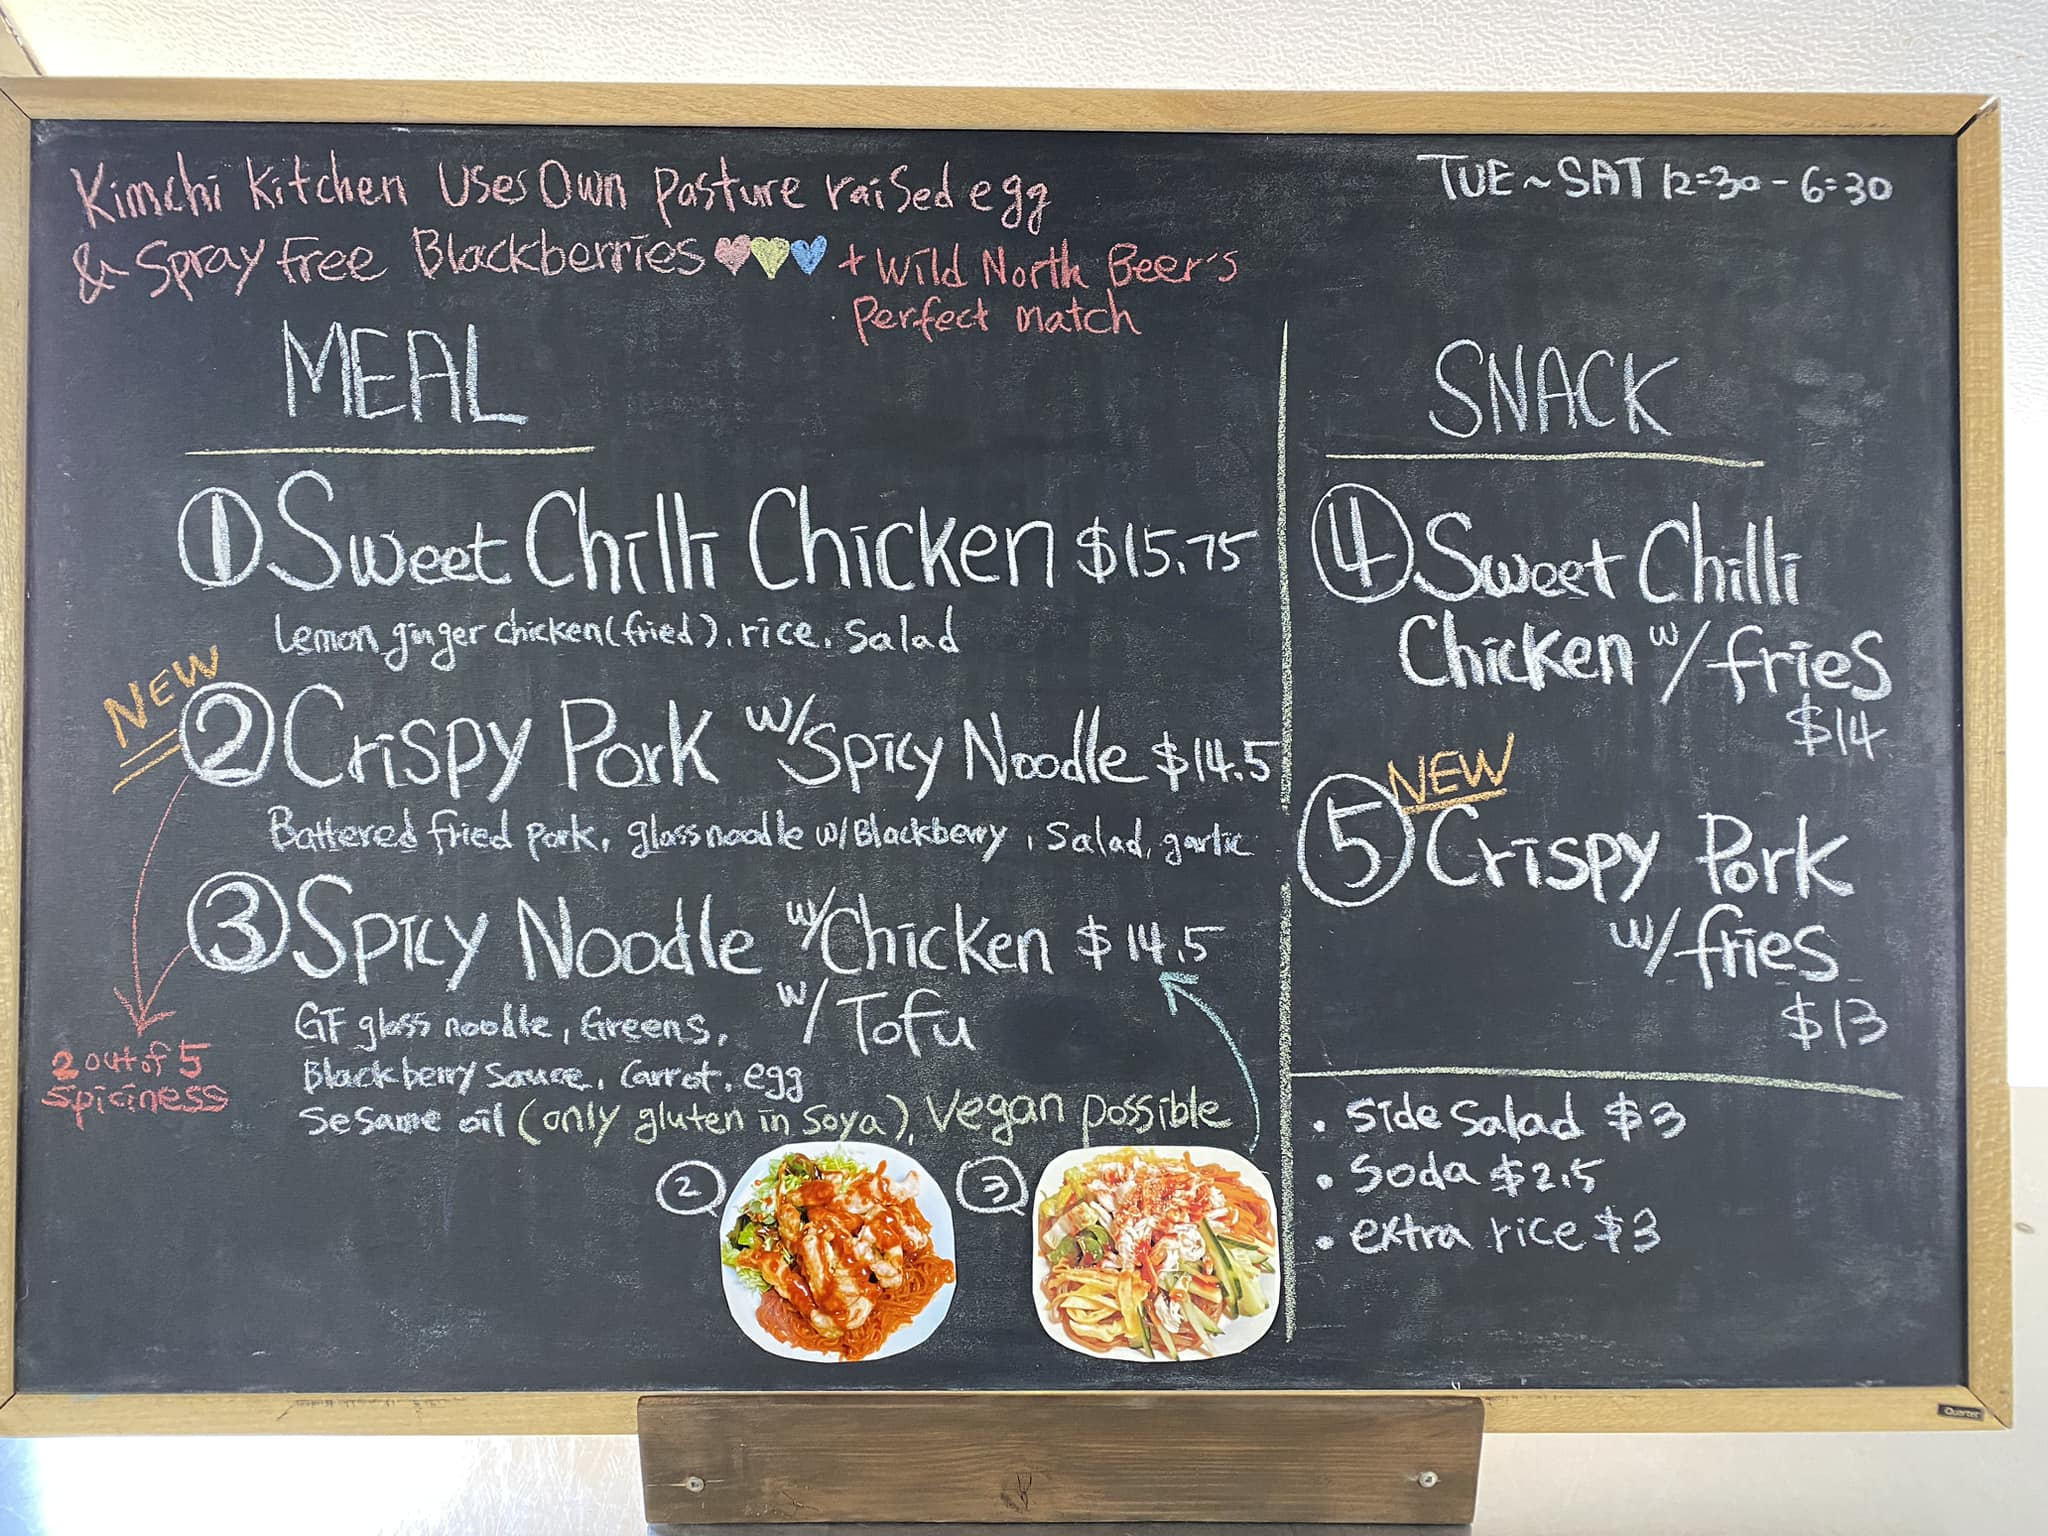 Kimchi Kitchen Uses Own pasture raised egg
& Spray Free Blackberries + Wild North Beer's
Perfect match
TUE ~ SAT 12:30 - 6:30
MEAL
① Sweet Chilli Chicken $15.75
Lemon ginger chicken (fried), rice, salad
NEW
② Crispy Pork w/ Spicy Noodle $14.5
Battered fried pork, glass noodle w/ Blackberry, Salad, garlic
③ Spicy Noodle w/ Chicken $14.5
w/ Tofu
GF glass noodle, Greens,
Blackberry Sauce, Carrot, egg
Sesame oil (only gluten in Soya), Vegan possible
2 out of 5
spiciness
② ③
SNACK
④ Sweet Chilli
Chicken w/ fries
$14
NEW
⑤ Crispy Pork
w/ fries
$13
• Side Salad $3
• Soda $2.5
• extra rice $3
Quartet